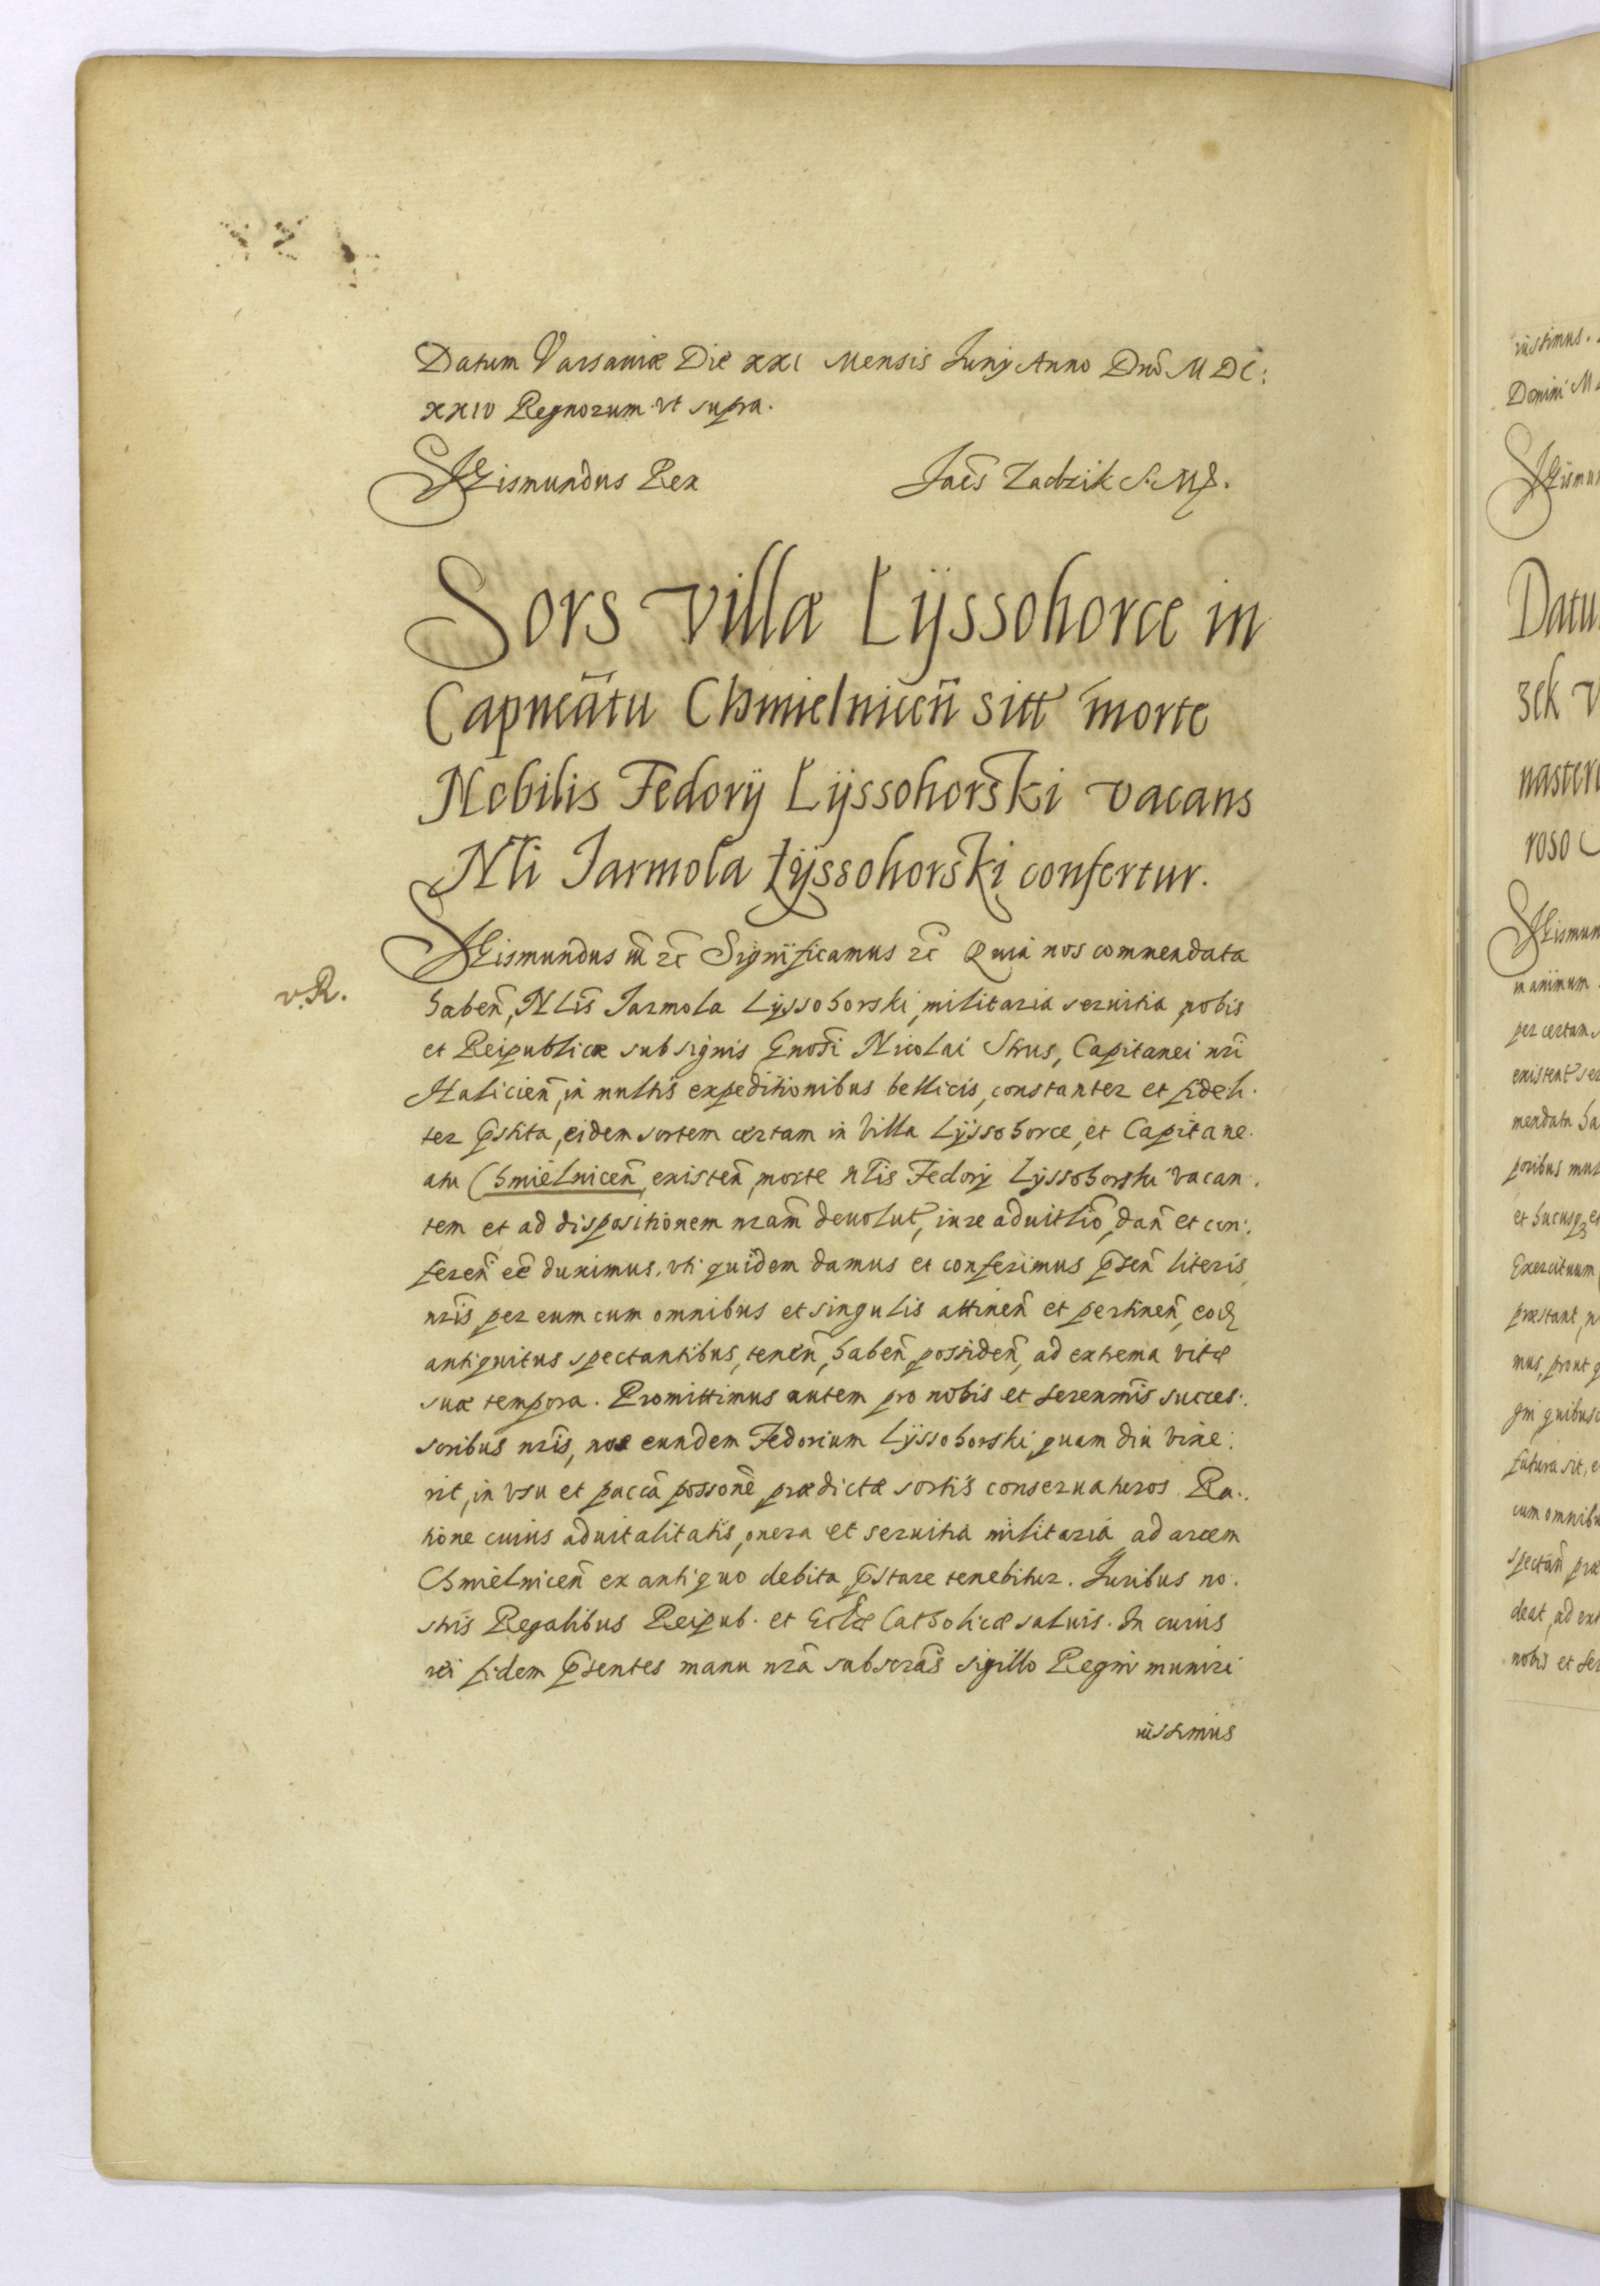 Datum Varsaviæ Die XXI Mensis Junÿ Anno Dnĩ M DC:
XXIV Regnorum vt supra.
Sigismundus Rex
Jacs Zadzik S. Mp.
Sors villæ Lÿssohorce in
Capneãtu Chmielniceñ sitt morte
Nobilis Fedorÿ Lÿssohorski vacans
Nli Jarmola Lÿssohorski confertur.
Sigismundus iii ⁊c Significamus ⁊c Quia nos commendata
v. R.
habeñ, Nlis Jarmola Lÿssohorski, militaria seruitia nobis
et Reipublicæ sub signis Gnosi Nicolai Strus, Capitanei nri
Halicieñ, in multis expeditionibus bellicis, constanter et fideli.
ter pstita, eidem sortem certam in Villa Lÿssohorce, et Capitane.
atu Chmielniceñ, existeñ, morte nlis Fedorÿ Lÿssohorski vacan.
tem et ad dispositionem nram deuolut, iure aduitlio, dañ et con:
fereñ eẽ duximus, vti quidem damus et conferimus pseñ literis
nris, per eum cum omnibus et singulis attineñ et pertineñ, eod
antiquitus spectantibus, teneñ, habeñ, possideñ, ad extrema vitæ
suæ tempora. Promittimus autem pro nobis et serenmis succes.
soribus nris, nos eundem Fedorium Lÿssohorski, quam diu vixe:
rit, in vsu et paccã possonẽ prædictæ sortis conseruaturos. Ra..
tione cuius aduitalitatis, onera et seruitia militaria ad arcem
Chmielniceñ ex antiquo debita pstare tenebitur. Juribus no.
stris Regalibus Reipub. et Ecclæ Catholicæ saluis. In cuius
rei fidem psentes manu nra subscras sigillo Regni muniri
iussimus
iussimus.
Domini M
Sigismun
Datu
zek v
naster
roso
Sigismun
in animum
per certam s
existent se
mendata ha
poribus mul
et hucusq et
Exercituum
præstant, n
mus, prout q
gni quibusc
futura sit, e
cum omnibu
spectañ præ
deat, ad ext
nobis et ser